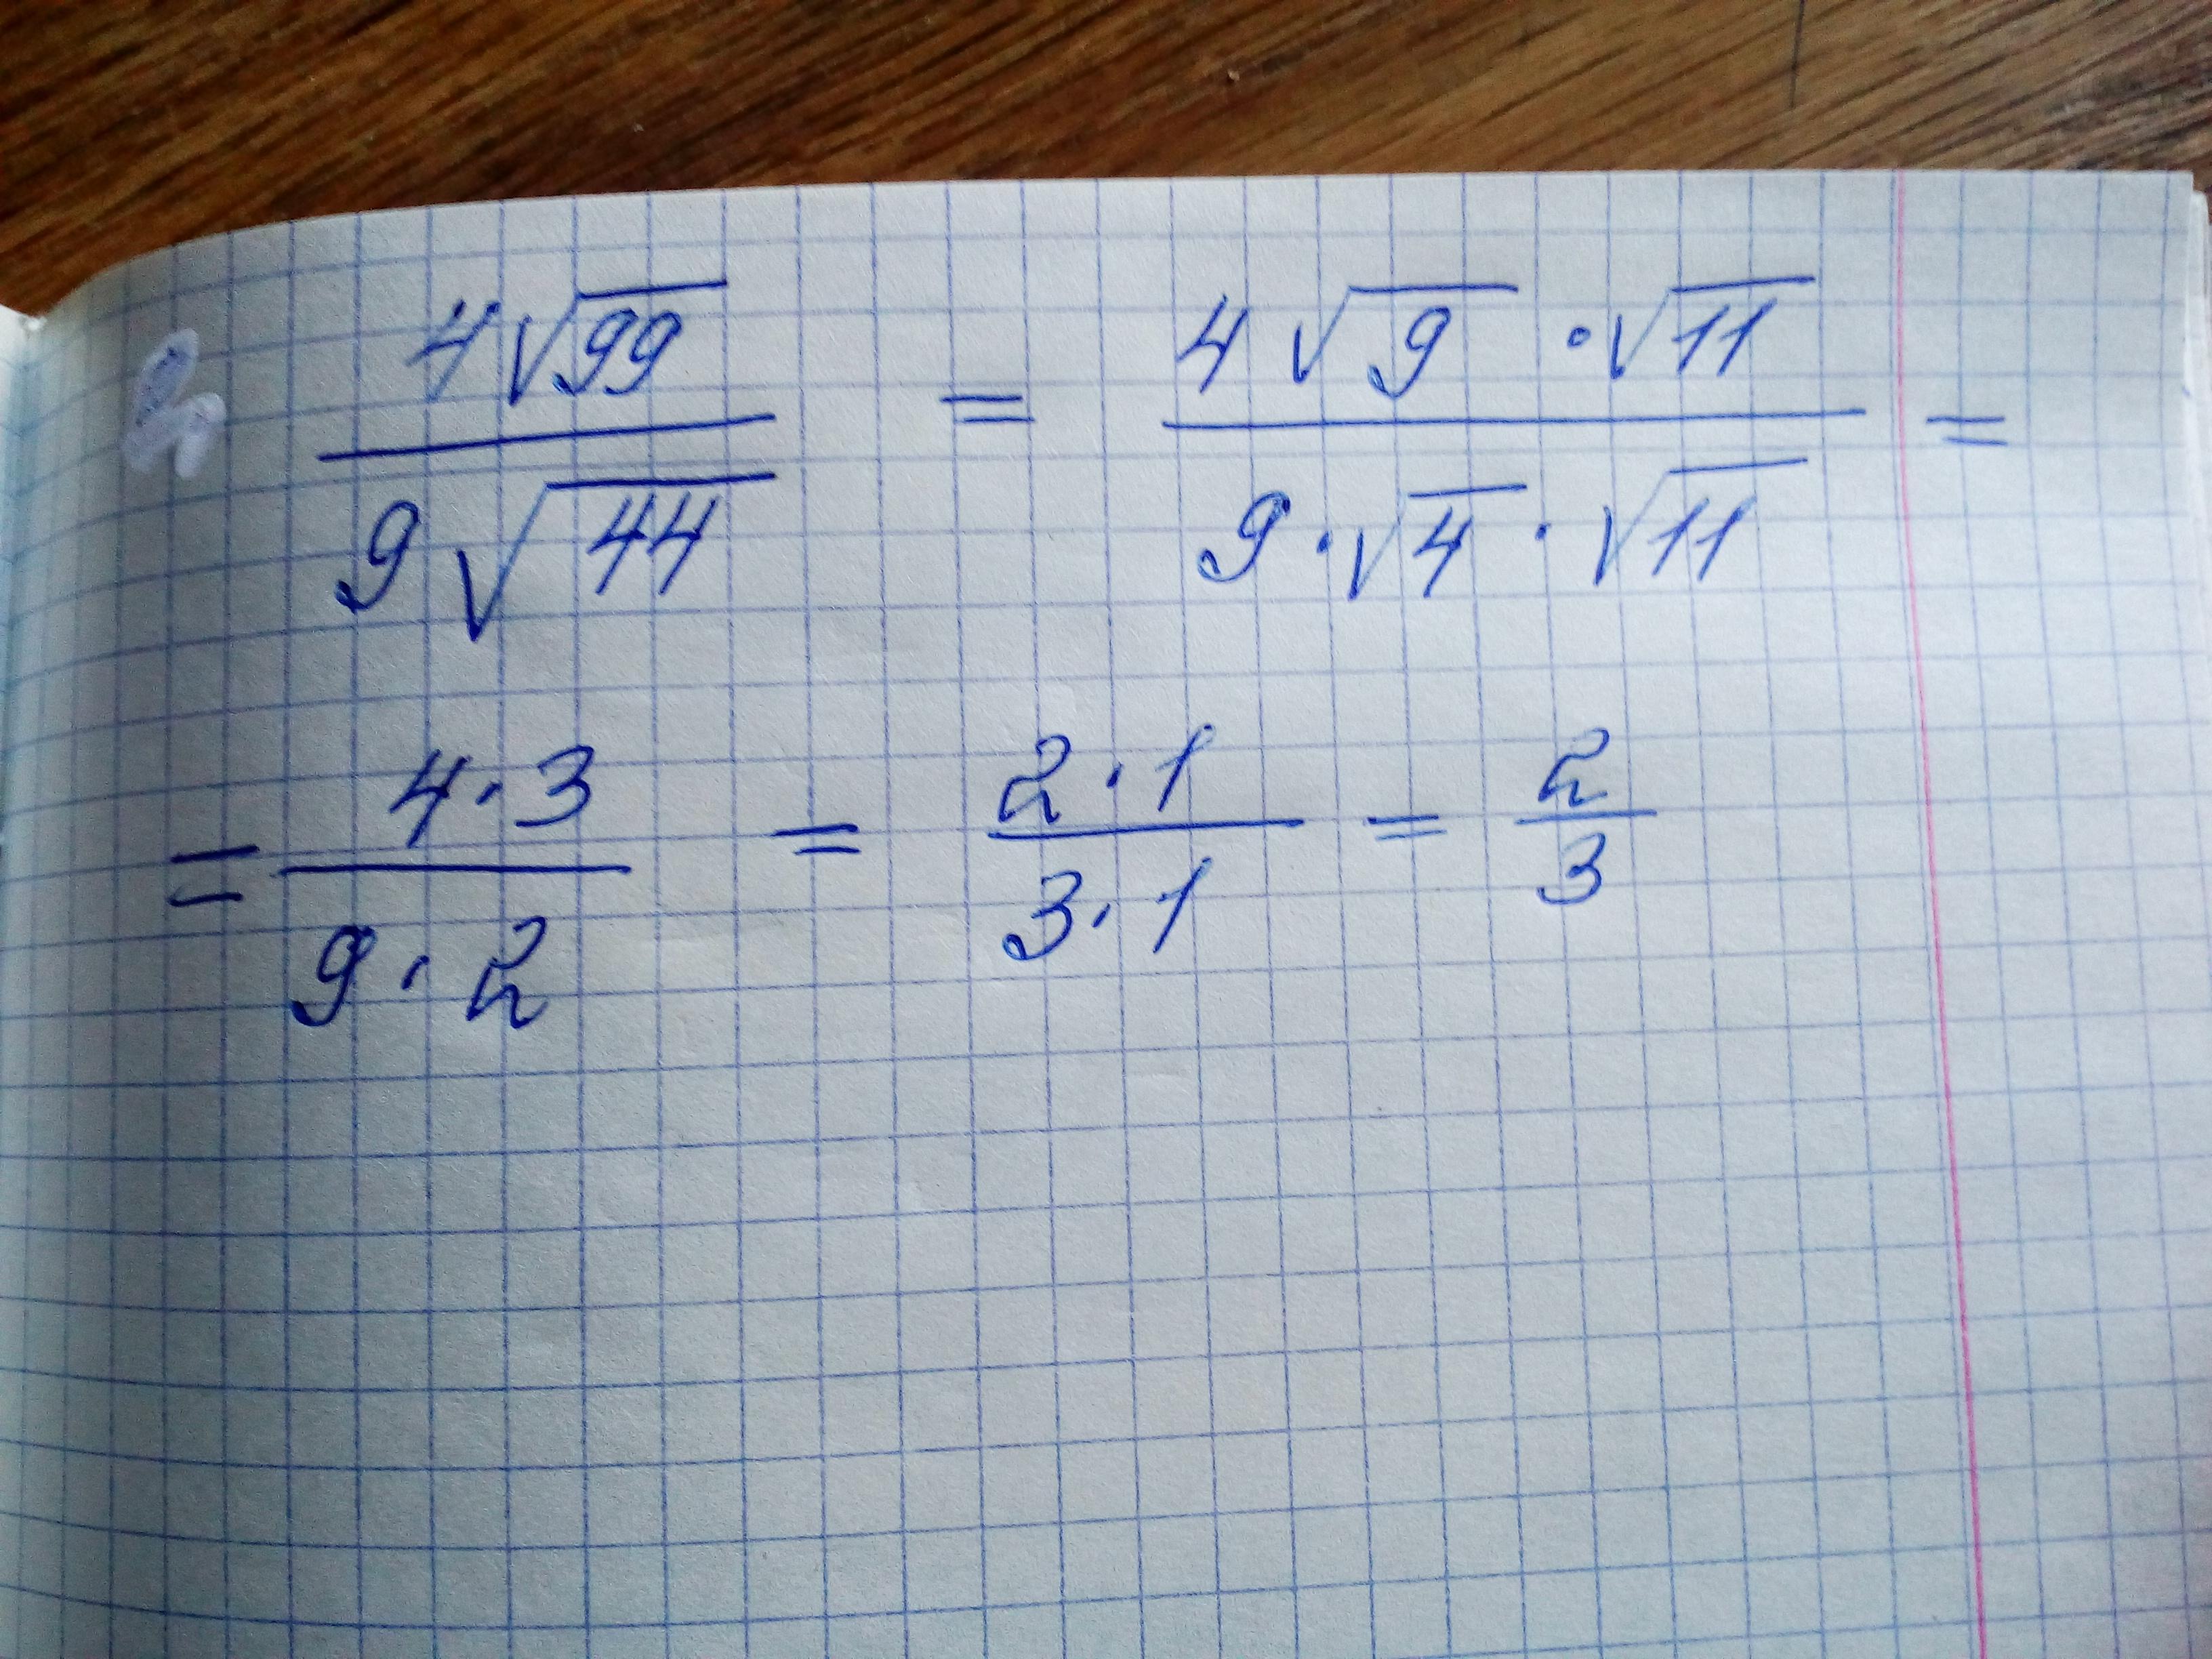 4√99 / 9√44 = 4√9 · √11 / 9 · √4 · √11 =
= 4 · 3 / 9 · 2 = 2 · 1 / 3 · 1 = 2 / 3